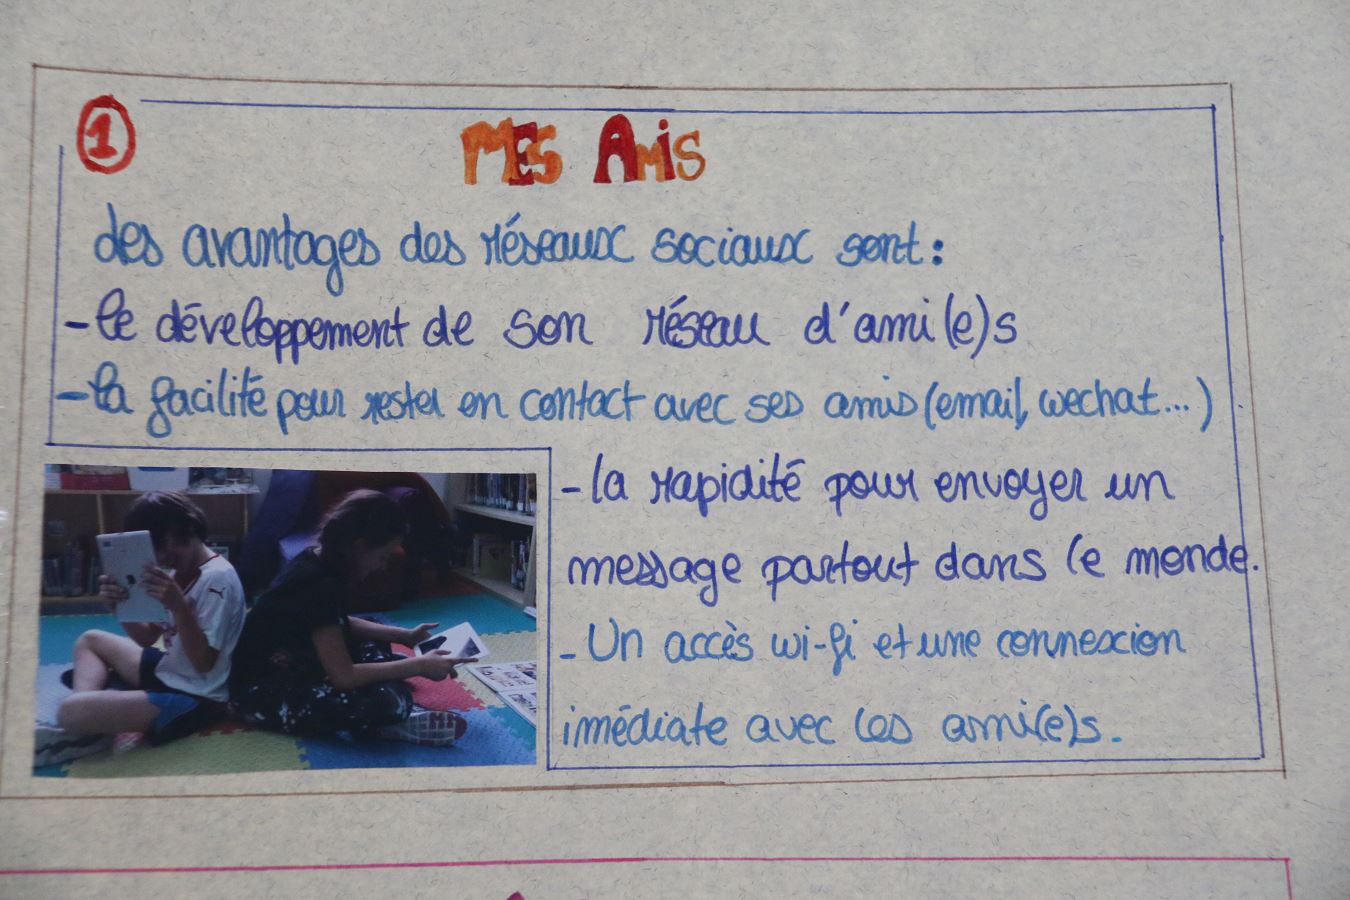 1
MES AMiS
des avantages des réseaux sociaux sont :
- le développement de son réseau d'ami(e)s
- la facilité pour rester en contact avec ses amis (email, wechat...)
- la rapidité pour envoyer un
message partout dans le monde.
- Un accès wi-fi et une connexion
imédiate avec les ami(e)s.